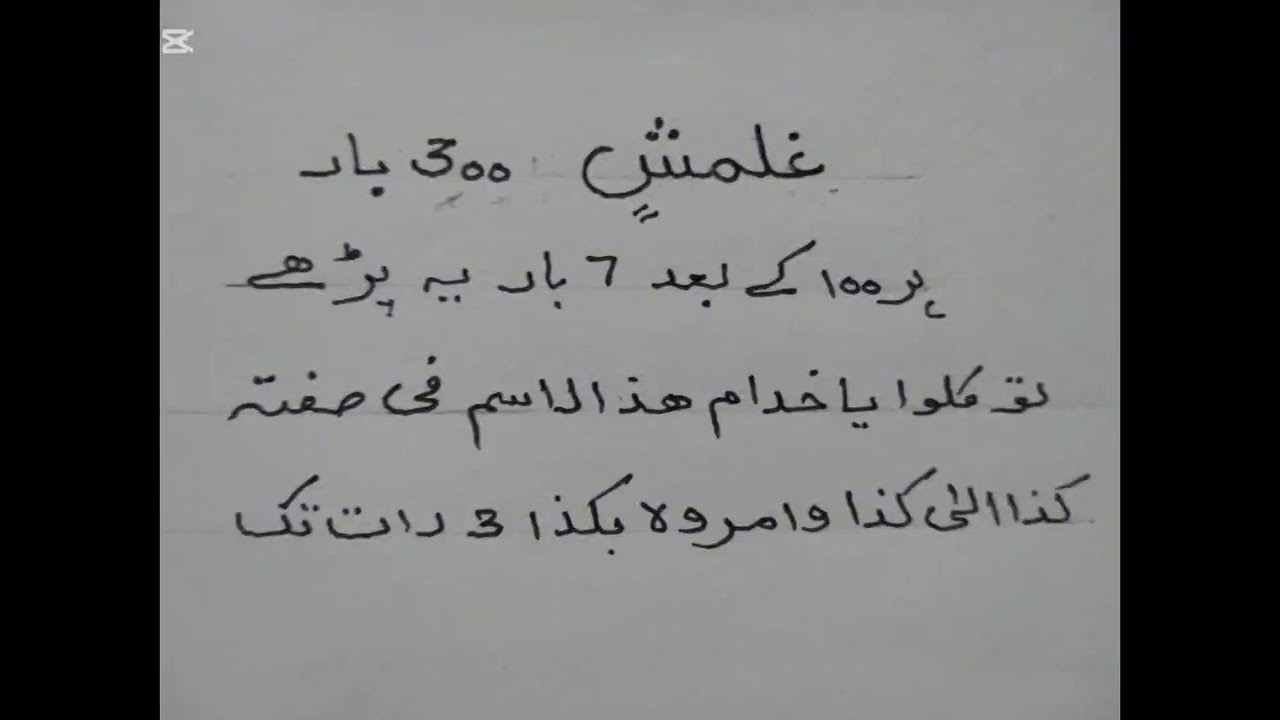 غلمشٍ 300 بار
ہر 100 کے بعد 7 بار یہ پڑھے
توکلوا یا خدام ھذا الاسم فی صفتہ
کذا الیٰ کذا وامروہ بکذا 3 رات تک